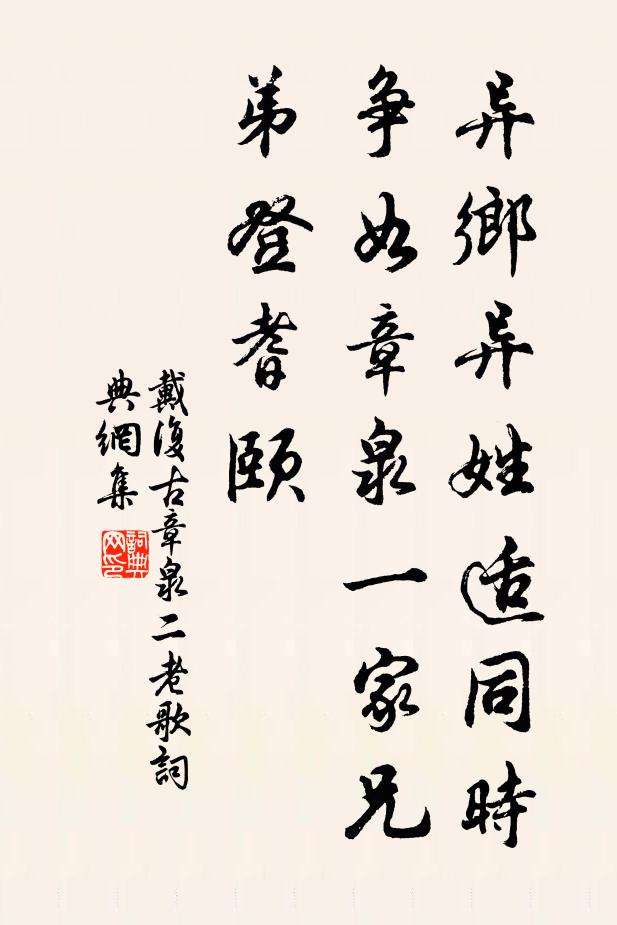 异鄉异姓适同時
争如章泉一家兄
弟登耆頤
戴復古章泉二老歌詞
典網集
詞典
网印